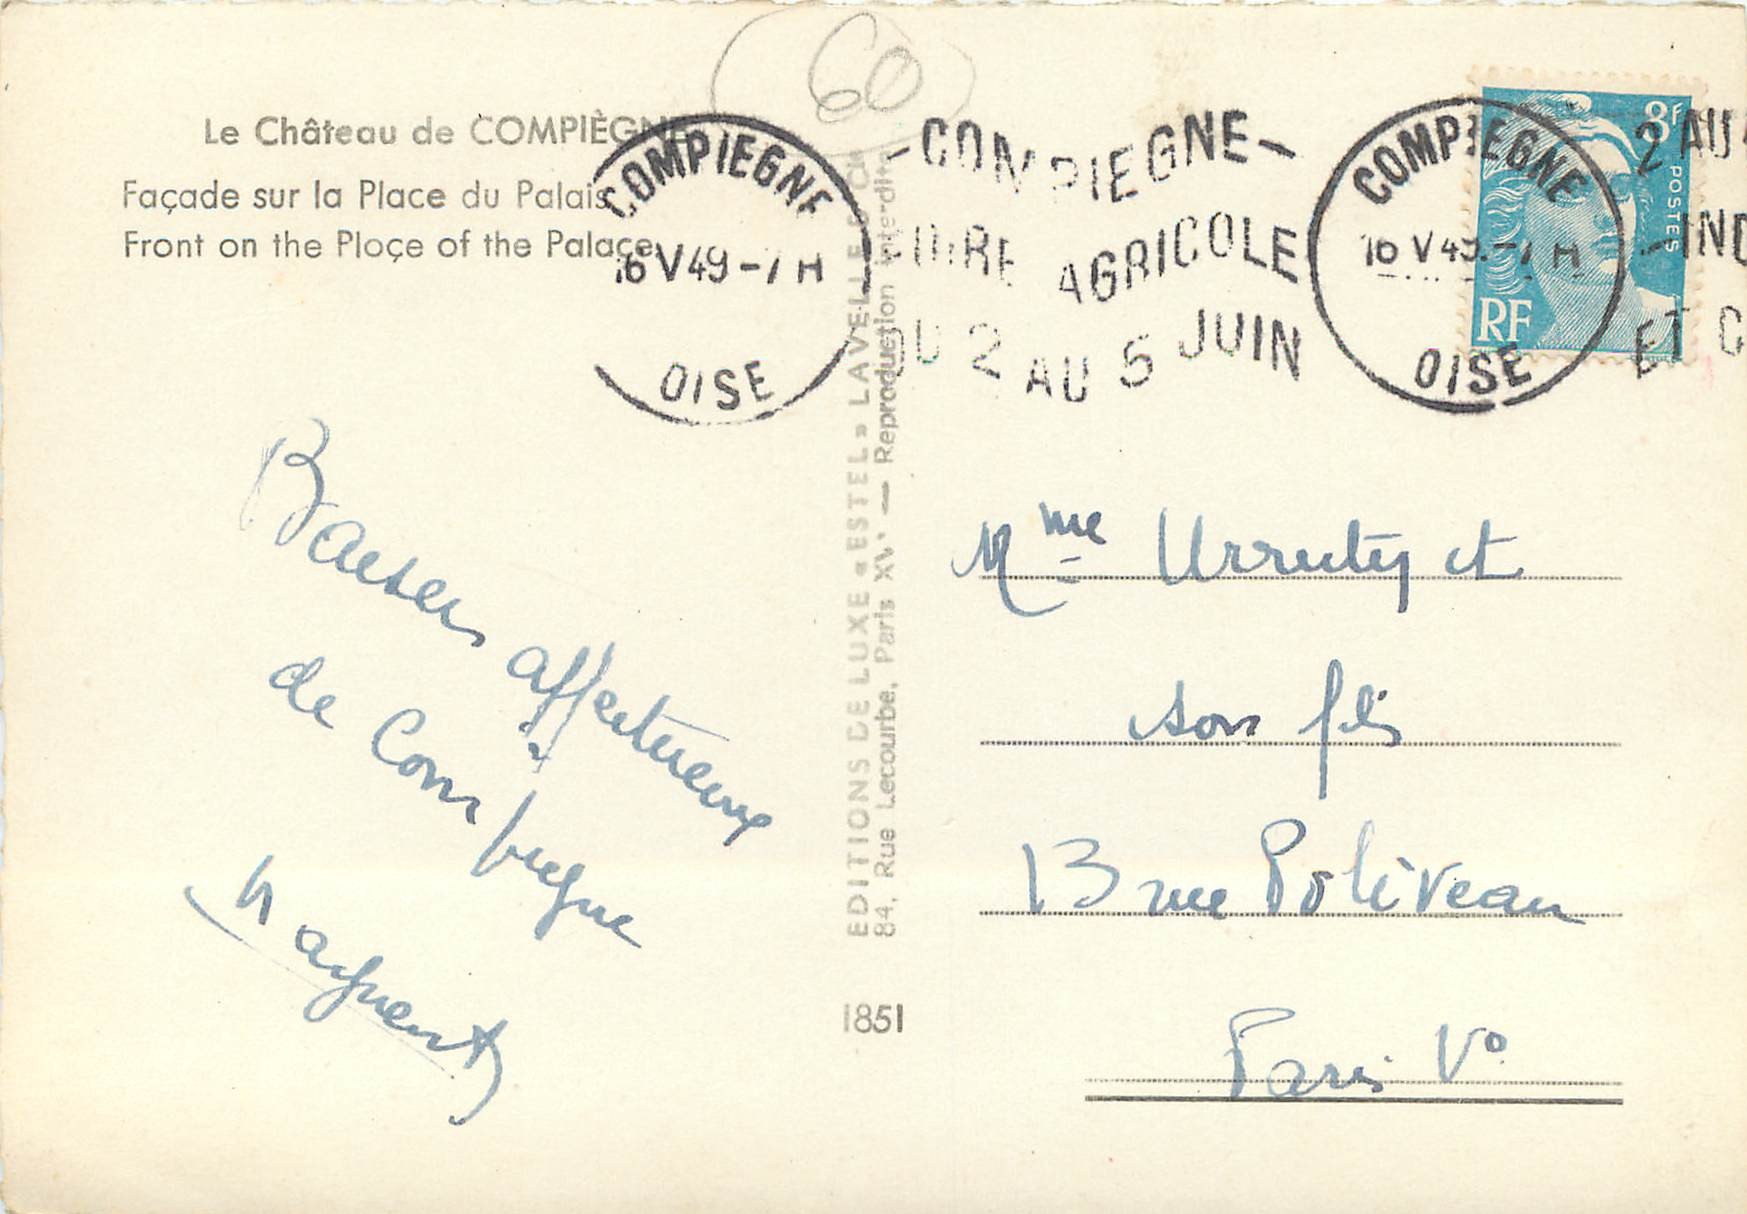 60
Le Château de COMPIÈGNE
Façade sur la Place du Palais
Front on the Ploçe of the Palaçe
COMPIEGNE
16 V 49 - 7 H
OISE
-COMPIEGNE-
FOIRE AGRICOLE
DU 2 AU 5 JUIN
COMPIEGNE
16 V 49 - 7 H
OISE
2 AU
-IND
ET C
8F
POSTES
RF
Baisers affectueux
de Compiègne
EDITIONS DE LUXE « ESTEL » LAVELLE
84, Rue Lecourbe, Paris XVe — Reproduction interdite
1851
Mme Urruty et
son fils
13 rue Poliveau
Paris Vo